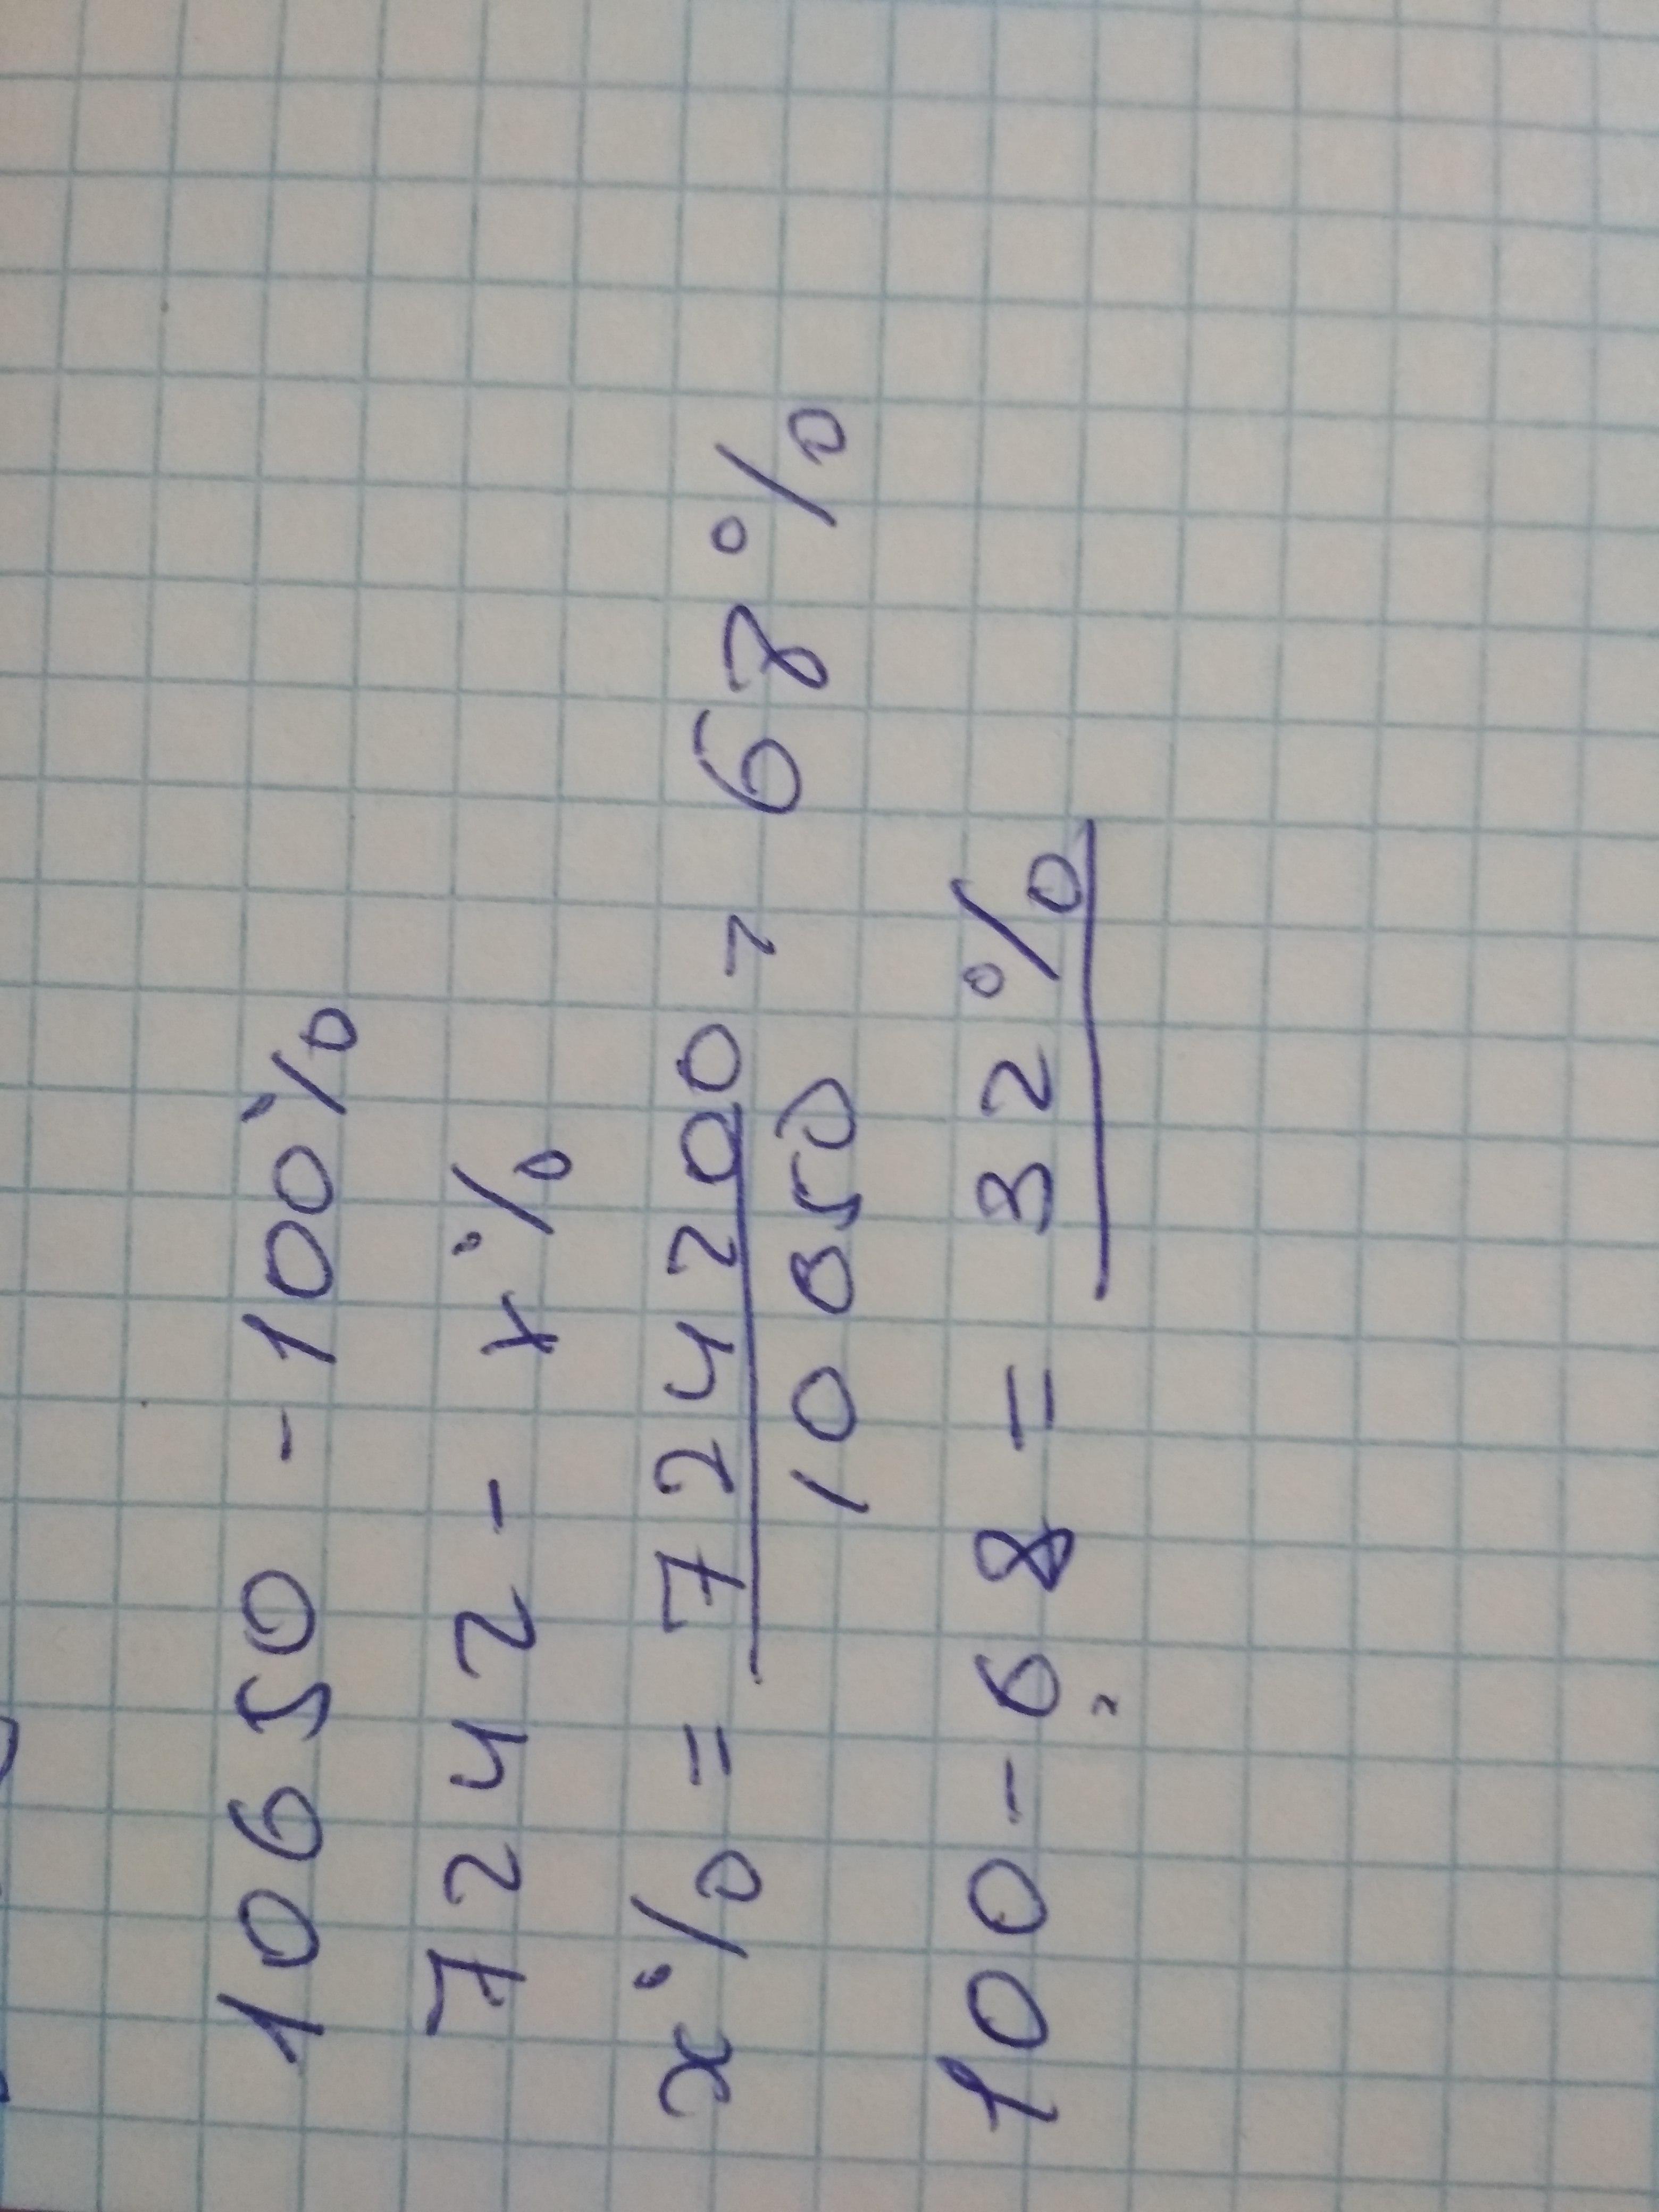 10650 - 100%
7242 - x%
x% = 724200 = 68%
10650
100 - 68 = 32%